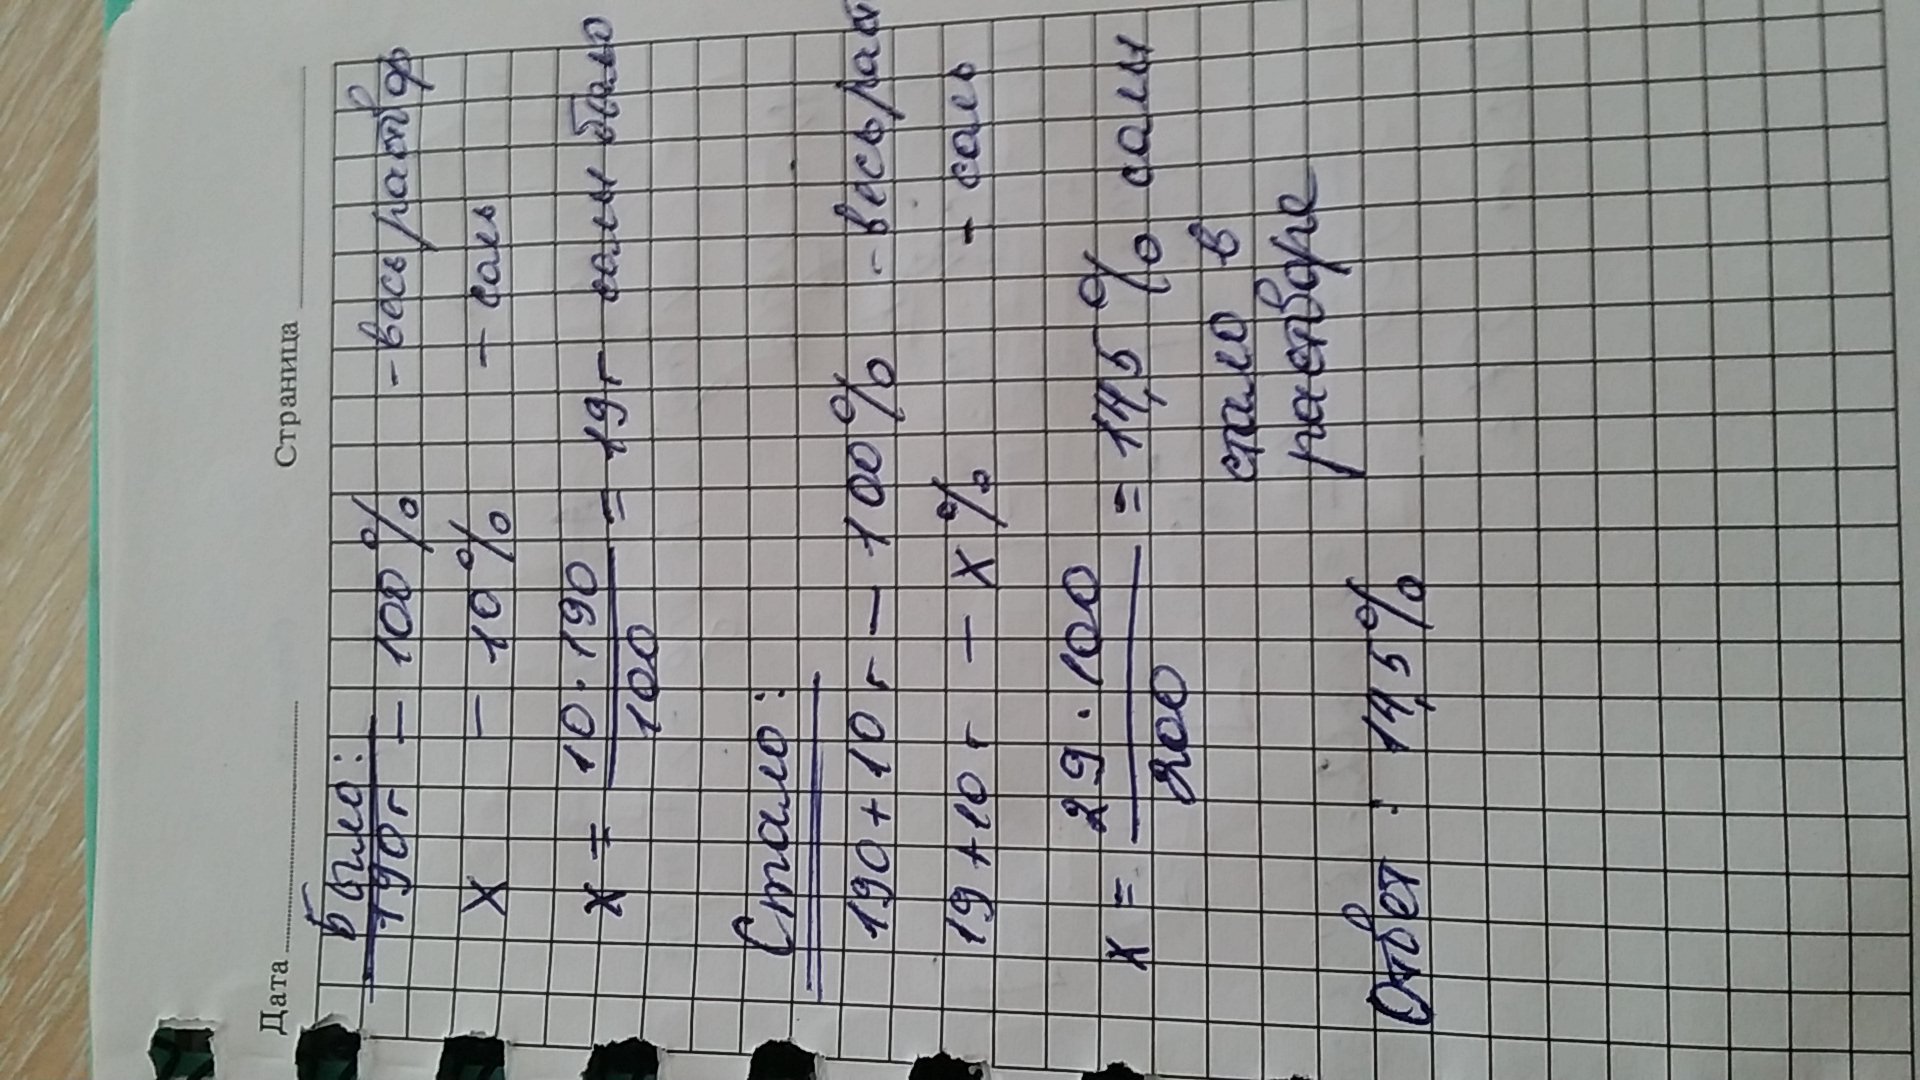 Дата Страница
Было:
190 г – 100 % – весь раствор
х – 10 % – соль
х = 10 · 190 / 100 = 19 г соли было
Стало:
190 + 10 г – 100 % – весь
19 + 10 г – х % – соль
х = 29 · 100 / 200 = 14,5 % соли
стало в
растворе
Ответ : 14,5 %